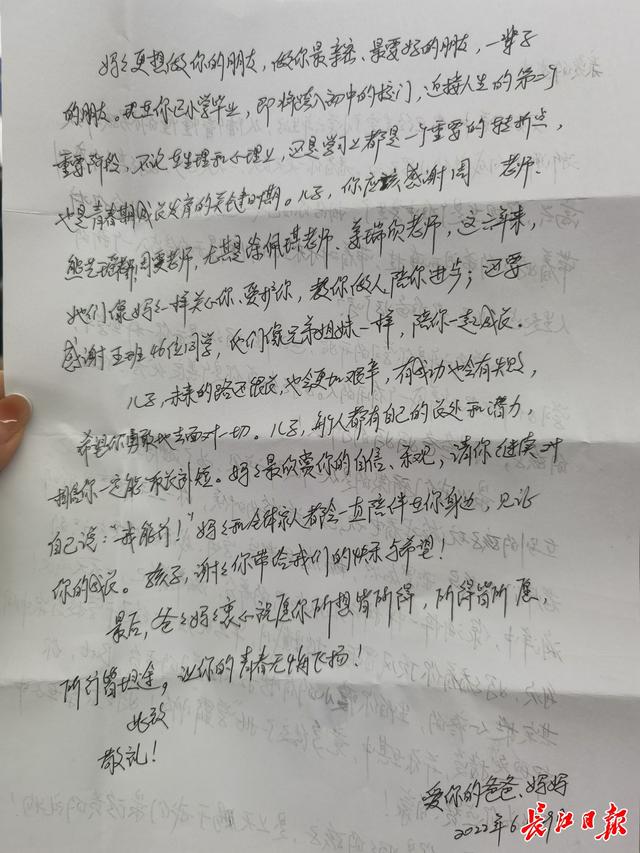 妈妈更想做你的朋友，做你最亲密、最要好的朋友，一辈子
的朋友。现在你已小学毕业，即将跨入初中的校门，迎接人生的第二个
重要阶段，不论在生理和心理上，还是学习上都是一个重要的转折点，
也是青春期成长发育的关键时期。儿子，你应该感谢周 老师、
老师，尤其是徐佩琪老师、姜瑞欣老师，这六年来，
她们像妈妈一样关心你、爱护你，教你做人，陪你进步；还要
感谢五班46位同学，他们像兄弟姐妹一样，陪你一起成长。
儿子，未来的路还很长，也会更加艰辛，有成功也会有失败，
希望你勇敢地去面对一切。儿子，每个人都有自己的长处和潜力，
相信你一定能取长补短。妈妈最欣赏你的自信、乐观，请你继续对
自己说：“我能行！”妈妈和全体家人都会一直陪伴在你身边，见证
你的成长。孩子，谢谢你带给我们的快乐与希望！
最后，爸爸妈妈衷心祝愿你所想皆所得，所得皆所愿，
所行皆坦途，让你的青春无悔飞扬！
此致
敬礼！
爱你的爸爸、妈妈
2022年6
长江日报